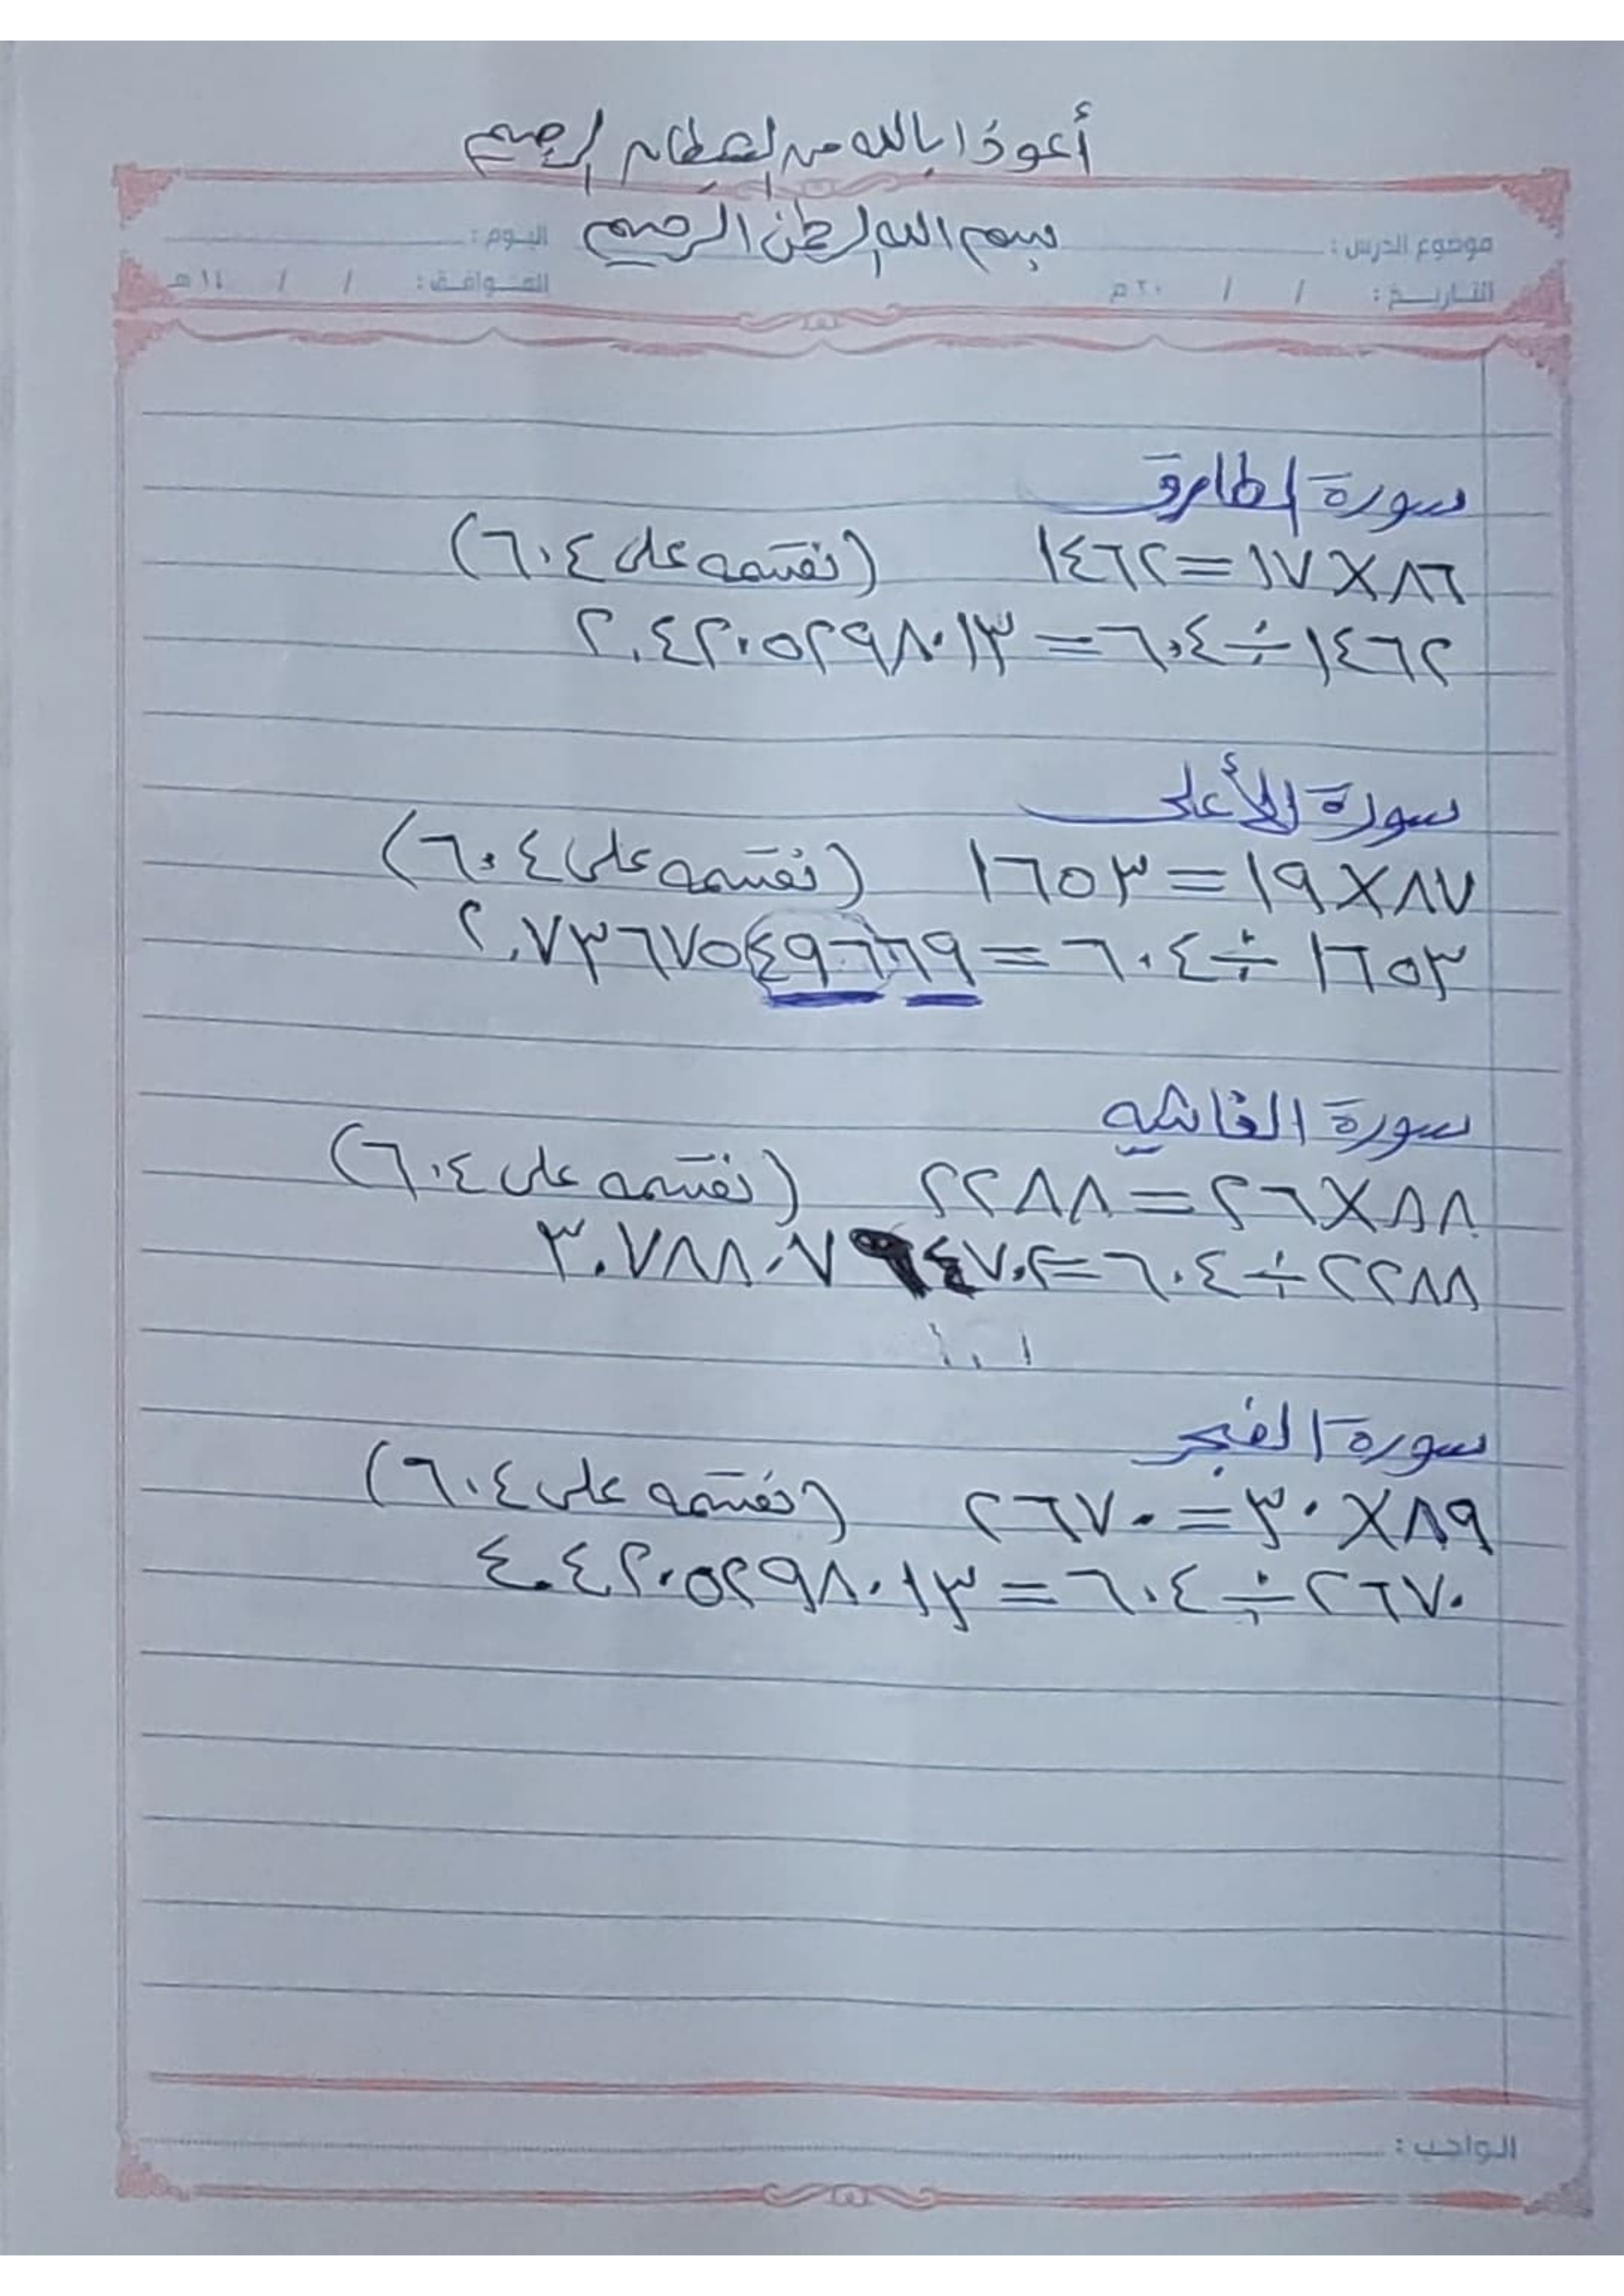 أعوذا بالله من الشيطان الرجيم
بسم الله الرحمن الرحيم
موضوع الدرس : اليوم :
التاريخ : / / ٢٠ م الموافق : / / ١٤ هـ
سورة الطارق
٨٦ × ١٧ = ١٤٦٢ (نقسمه على ٦٠٤)
١٤٦٢ ÷ ٦٠٤ = ٢.٤٢٠٥٢٩٨٠١٣
سورة الأعلى
٨٧ × ١٩ = ١٦٥٣ (نقسمه على ٦٠٤)
١٦٥٣ ÷ ٦٠٤ = ٢.٧٣٦٧٥٤٩٦٦٩
سورة الغاشيه
٨٨ × ٢٦ = ٢٢٨٨ (نقسمه على ٦٠٤)
٢٢٨٨ ÷ ٦٠٤ = ٣.٧٨٨٠٧٩٤٧٠٢
سورة الفجر
٨٩ × ٣٠ = ٢٦٧٠ (نقسمه على ٦٠٤)
٢٦٧٠ ÷ ٦٠٤ = ٤.٤٢٠٥٢٩٨٠١٣
الواجب :